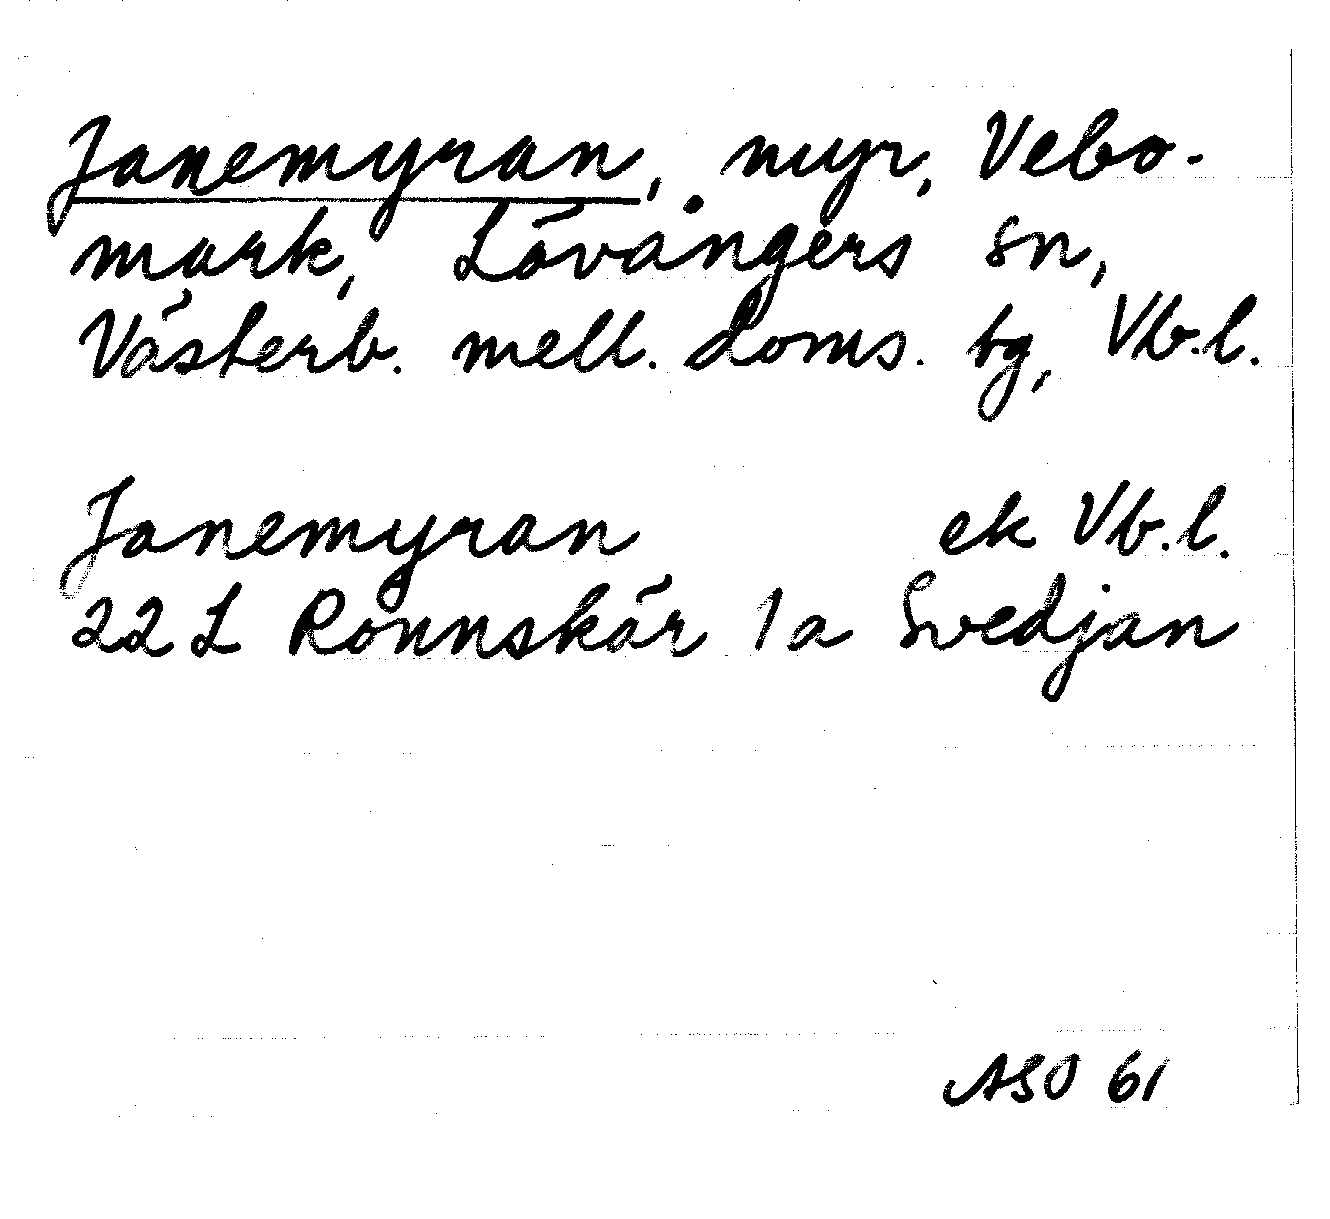 Janemyran, myr, Vebo-
mark, Lövångers sn,
Västerb. mell. doms. tg, Vb.l.
Janemyran ek Vb.l.
22 L Rönnskär 1a Svedjan
ASO 61